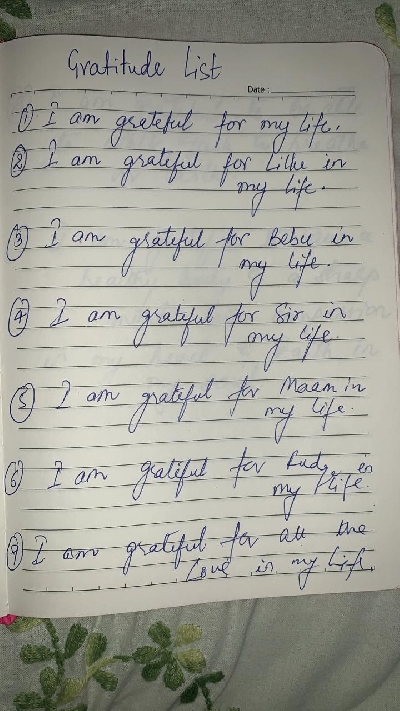 Gratitude List
Date :
① I am grateful for my life.
② I am grateful for in
my life.
③ I am grateful for Bebu in
my life.
④ I am grateful for Sir in
my life.
⑤ I am grateful for Maam in
my life.
⑥ I am grateful for in
my life.
⑦ I am grateful for all the
Love in my life.